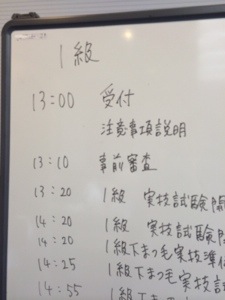 1級
13:00 受付
注意事項説明
13:10 事前審査
13:20 1級 実技試験開
14:20 1級 実技試験
14:20 1級下まつ毛実技準
14:25 1級下まつ毛実技試
14:55 1級下まつ毛